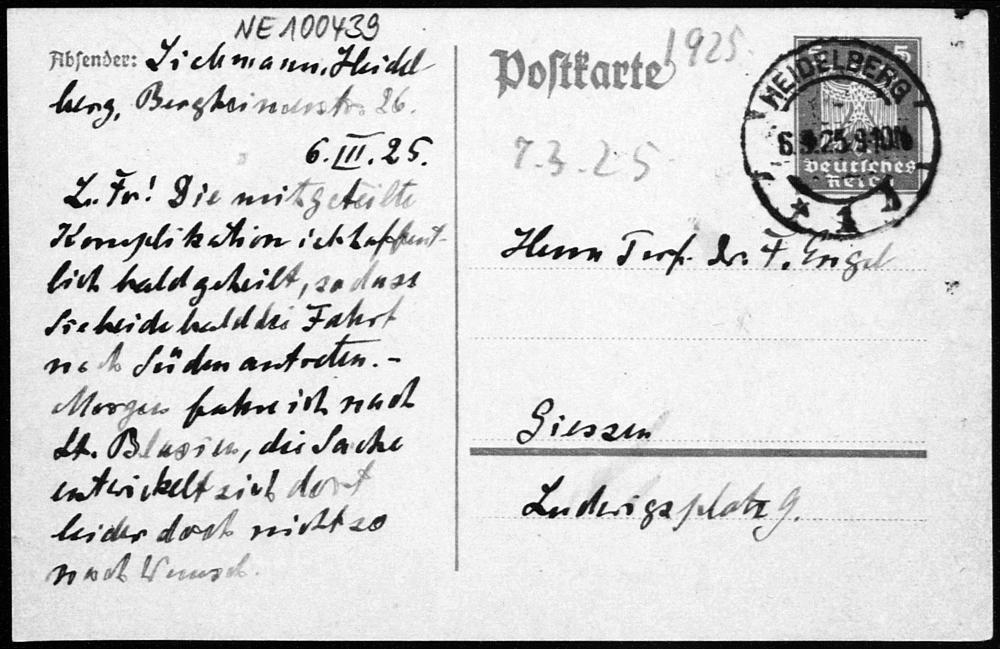 NE 100439
Absender: Lichmann. Heidel-
berg, Bergheimerstr. 26.
6. III. 25.
L. Fr! Die mitgeteilte
Komplikation ist hoffent-
lich bald geheilt, so dass
Sie beide bald die Fahrt
nach Süden antreten. -
Morgen fahre ich nach
St. Blasien, die Sache
entwickelt sich dort
leider doch nicht so
nach Wunsch.
Postkarte
1925
7.3.25
HEIDELBERG
6.3.25.9-10N
* 1
5
Deutsches
Reich
Herrn Prof. Dr. F. Engel
Giessen
Ludwigsplatz 9.